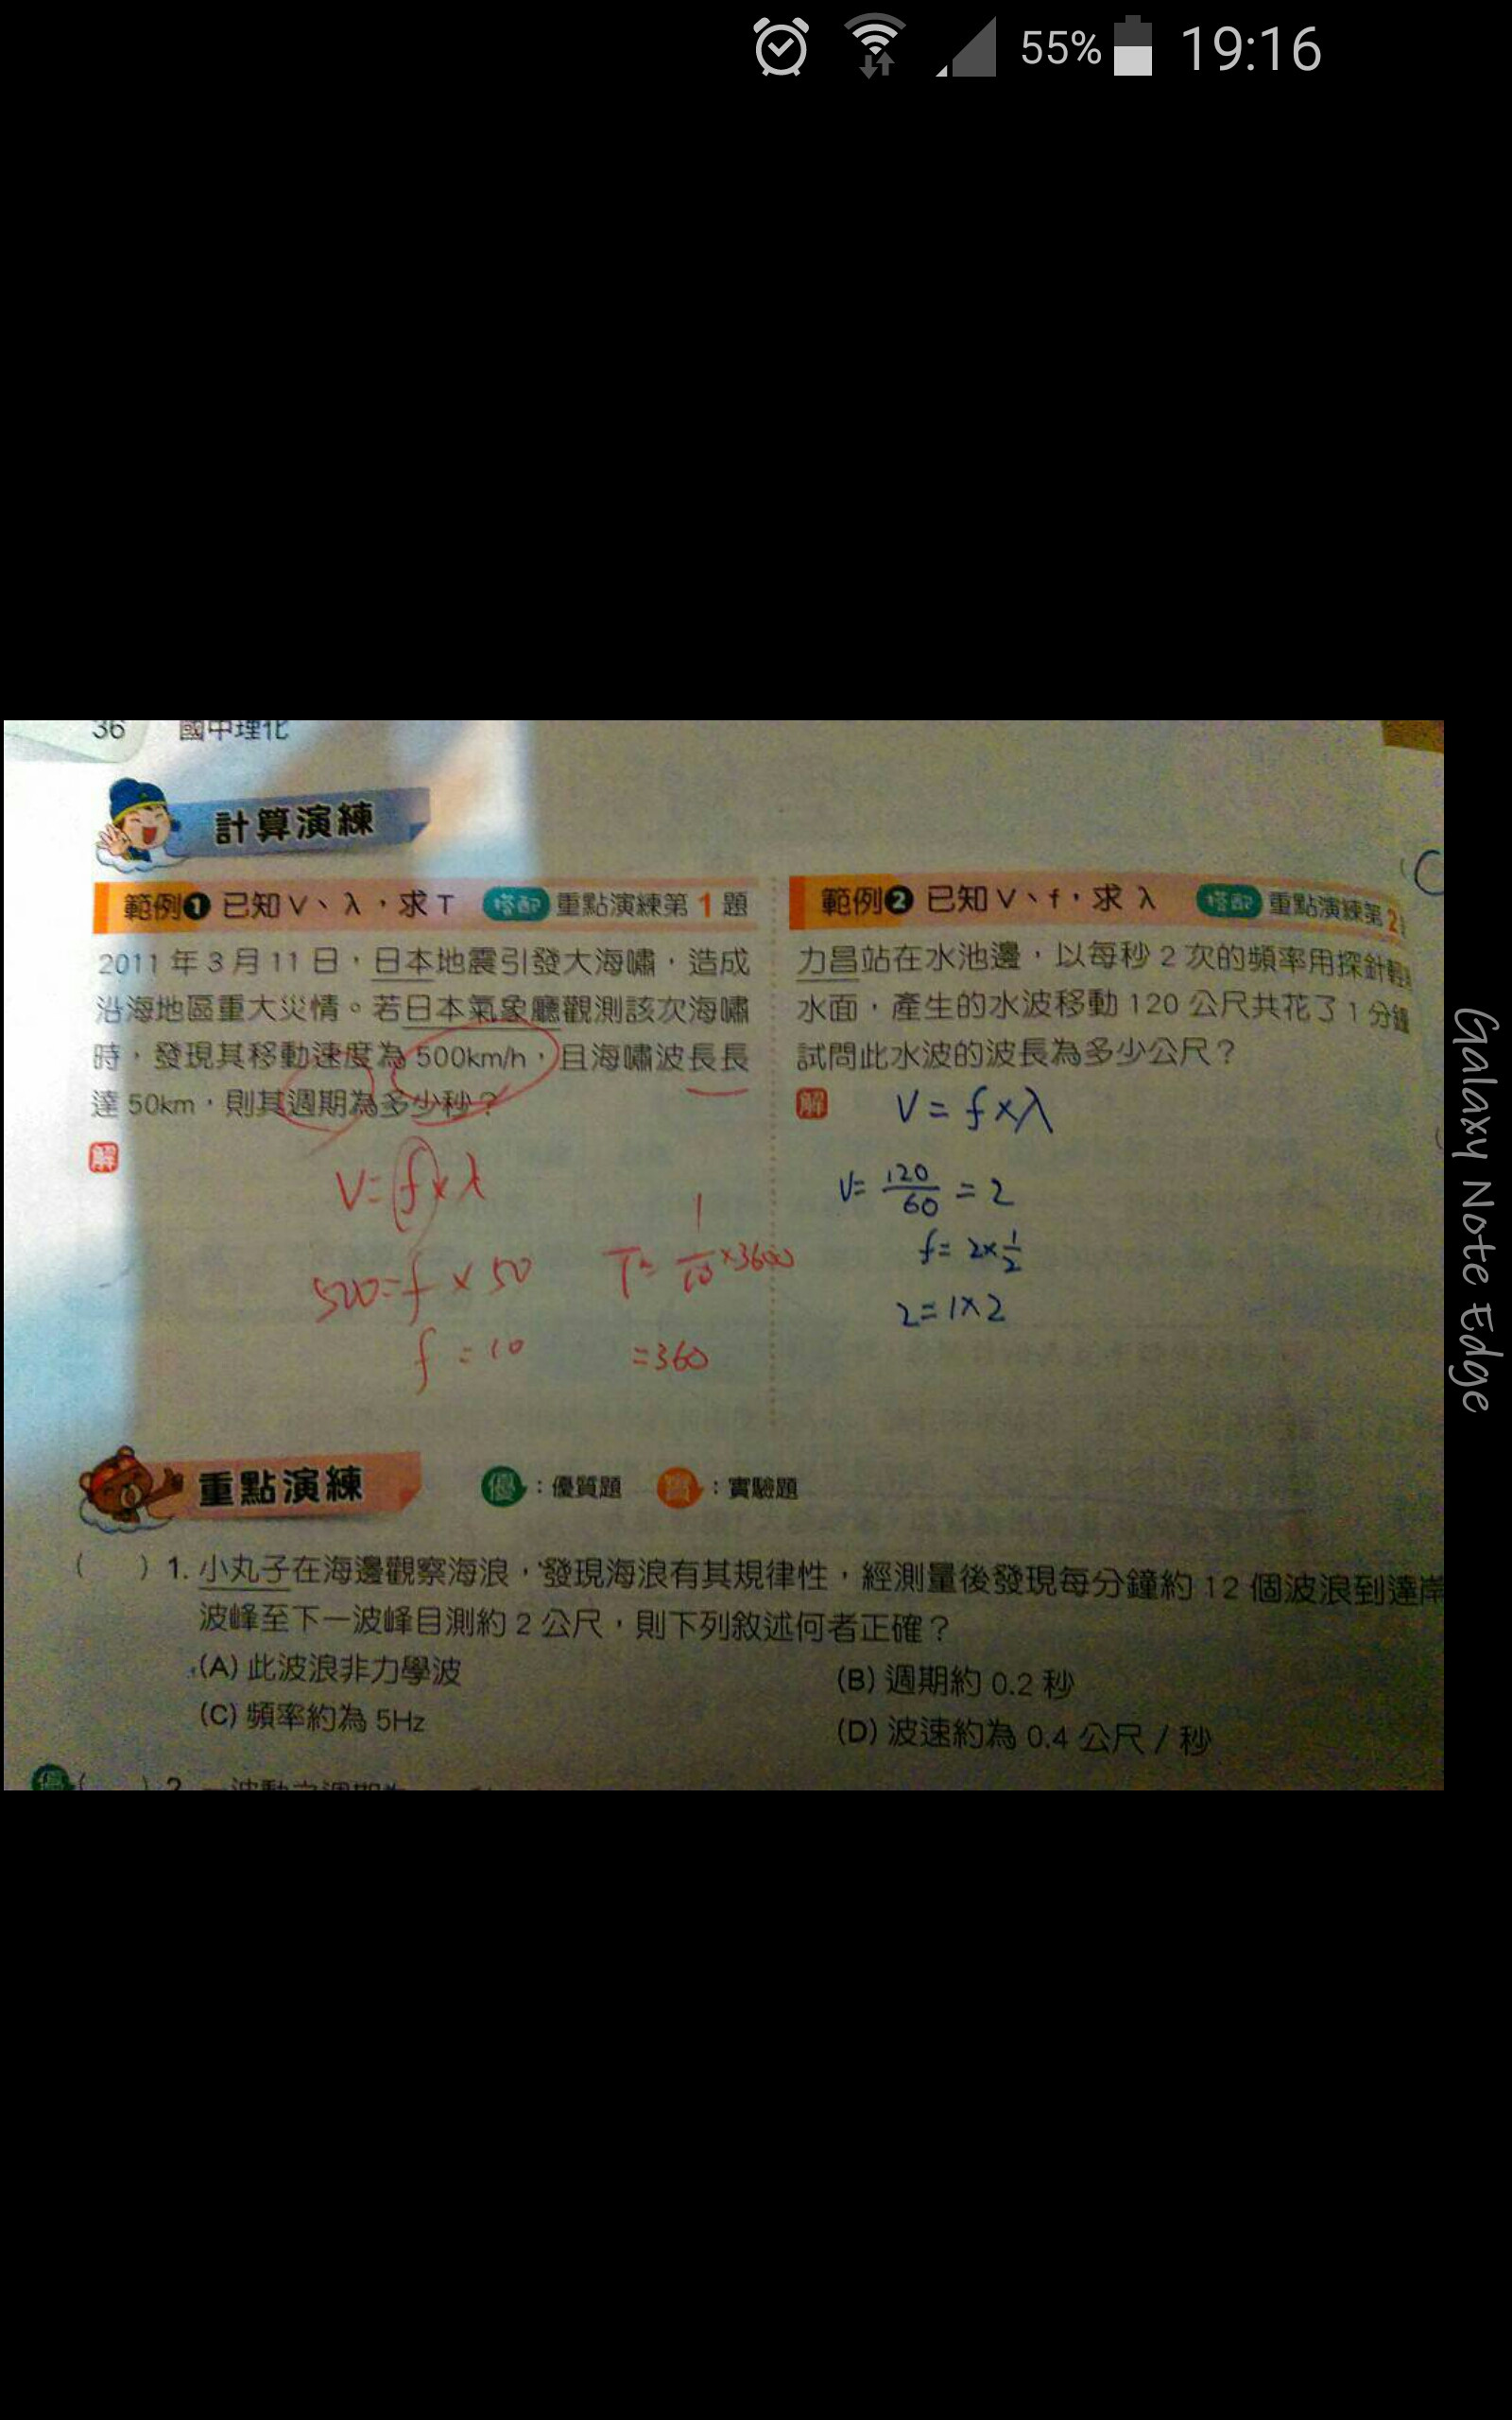 55% 19:16
36 國中理化
計算演練
範例❶ 已知 V、λ,求 T 搭配 重點演練第 1 題
2011 年 3 月 11 日,日本地震引發大海嘯,造成
沿海地區重大災情。若日本氣象廳觀測該次海嘯
時,發現其移動速度為 500km/h,且海嘯波長長
達 50km,則其週期為多少秒?
解
V=f×λ
500=f×50
f=10
T= 1/10 ×3600
=360
範例❷ 已知 V、f,求 λ 搭配 重點演練第 2
力昌站在水池邊,以每秒 2 次的頻率用探針輕
水面,產生的水波移動 120 公尺共花了 1 分鐘
試問此水波的波長為多少公尺?
解
V=f×λ
V= 120/60 =2
f= 2×1/2
2=1×2
重點演練 優:優質題 實:實驗題
( ) 1. 小丸子在海邊觀察海浪,發現海浪有其規律性,經測量後發現每分鐘約 12 個波浪到達岸
波峰至下一波峰目測約 2 公尺,則下列敘述何者正確?
(A) 此波浪非力學波 (B) 週期約 0.2 秒
(C) 頻率約為 5Hz (D) 波速約為 0.4 公尺/秒
優 ( ) 2. 一波動之週期為
Galaxy Note Edge